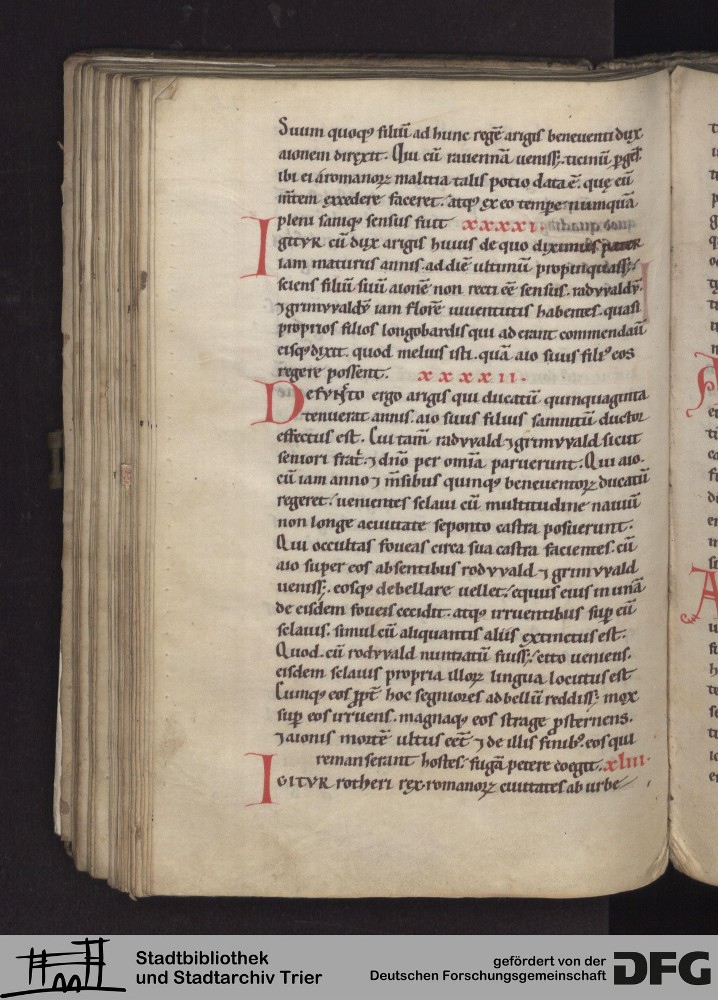 Suum quoq; filiū ad hunc regē arigis beneuenti dux
aionem direxit. Qui cū rauennā ueniss&. ticinū
ibi ei a romanorꝝ malitia talis potio data ē. que eū
m̄tem excedere faceret. atq; ex eo tempe numquā
pleni saniq; sensus fuit xxxxi.
IGITVR cū dux arigis huius de quo diximus pater
iam maturus annis. ad diē ultimū propinquass&.
sciens filiū suū aionē non recti eē sensus. radvvaldū.
⁊ grimvvaldū iam florē iuuentutis habentes. quasi
proprios filios longobardis qui aderant commendauī
eisq; dixit. quod melius isti. quā aio suus filiꝰ eos
regere possent. xxxxii.
Defuncto ergo arigis qui ducatū quinquaginta
tenuerat annis. aio suus filius samnitū ductor
effectus est. Cui tam̄ radvvald ⁊ grimvvald sicut
seniori frat̄. ⁊ dn̄o per om̄ia paruerunt. Qui aio.
cū iam anno ⁊ m̄sibus quinq; beneuentorꝝ ducatū
regeret. uenientes sclaui cū multitudine nauiū
non longe a ciuitate seponto castra posuerunt.
Qui occultas foueas circa sua castra facientes. cū
aio super eos absentibus rodvvald ⁊ grimvvald
ueniss&. eosq; debellare uellet. equus eius in unā
de eisdem foueis cecidit. atq; irruentibus sup̄ eū
sclauis. simul cū aliquantis aliis extinctus est.
Quod. cū rodvvald nuntiatū fuiss&. cito ueniens.
eisdem sclauis propria illorꝝ lingua locutus est
Cumq; eos ꝓpt̄ hoc segniores ad bellū reddiss&. mox
sup̄ eos irruens. magnaq; eos strage ꝓsternens.
⁊ aionis mortē ultus est ⁊ de illis finibꝰ. eos qui
remanserant hostes. fugā petere coegit. xliii.
IGITVR rotheri rex. romanorꝝ ciuitates ab urbe
Stadtbibliothek
und Stadtarchiv Trier
gefördert von der
Deutschen Forschungsgemeinschaft
DFG